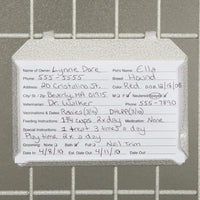 Name of Owner Lynnie Dare Pet's Name Ella
Phone 555-5555 Breed Hound
Address 20 Cristalino St. Color Red DOB 12/18/08
City/St/Zip Bearly, MA 01915
Veterinarian Dr. Walker Phone 555-7890
Vaccinations & Dates Rabies
Feeding Instructions 1 3/4 cups 2x day Medication None
Special Instructions 1 treat 3 times a day
Play time 2x a day
Grooming: None Bath Full Nail Trim
Date In 4/8/10 Date Out 4/11/10 Date In Date Out